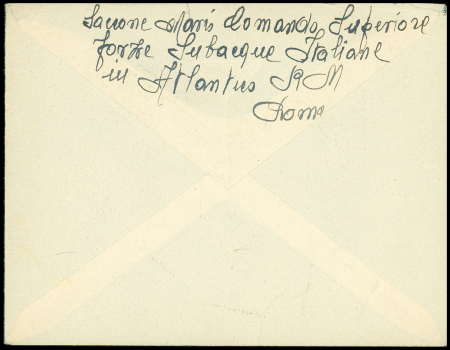 Saccone Mario Comando Superiore
Forze Subacque Italiane
in Atlantico R M
Roma